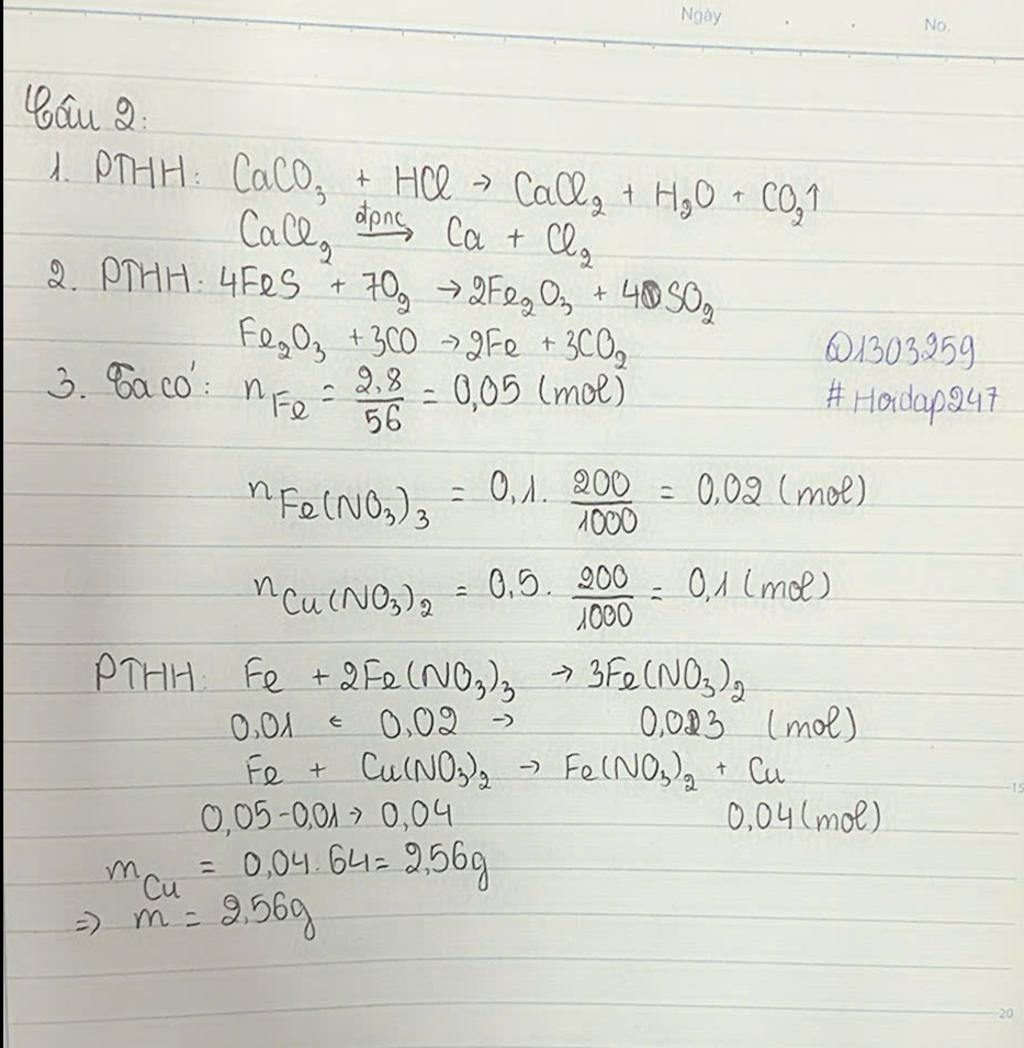 Ngày No.
Câu 2:
1. PTHH: CaCO₃ + HCl → CaCl₂ + H₂O + CO₂↑
CaCl₂ đpnc→ Ca + Cl₂
2. PTHH: 4FeS + 7O₂ → 2Fe₂O₃ + 4SO₂
Fe₂O₃ + 3CO → 2Fe + 3CO₂
@1303259
3. Ta có: n Fe = 2,8/56 = 0,05 (mol)
#Hoidap247
n Fe(NO₃)₃ = 0,1. 200/1000 = 0,02 (mol)
n Cu(NO₃)₂ = 0,5. 200/1000 = 0,1 (mol)
PTHH: Fe + 2Fe(NO₃)₃ → 3Fe(NO₃)₂
0,01 ← 0,02 → 0,03 (mol)
Fe + Cu(NO₃)₂ → Fe(NO₃)₂ + Cu
0,05-0,01 → 0,04 0,04 (mol)
15
m Cu = 0,04.64 = 2,56g
⇒ m = 2,56g
20